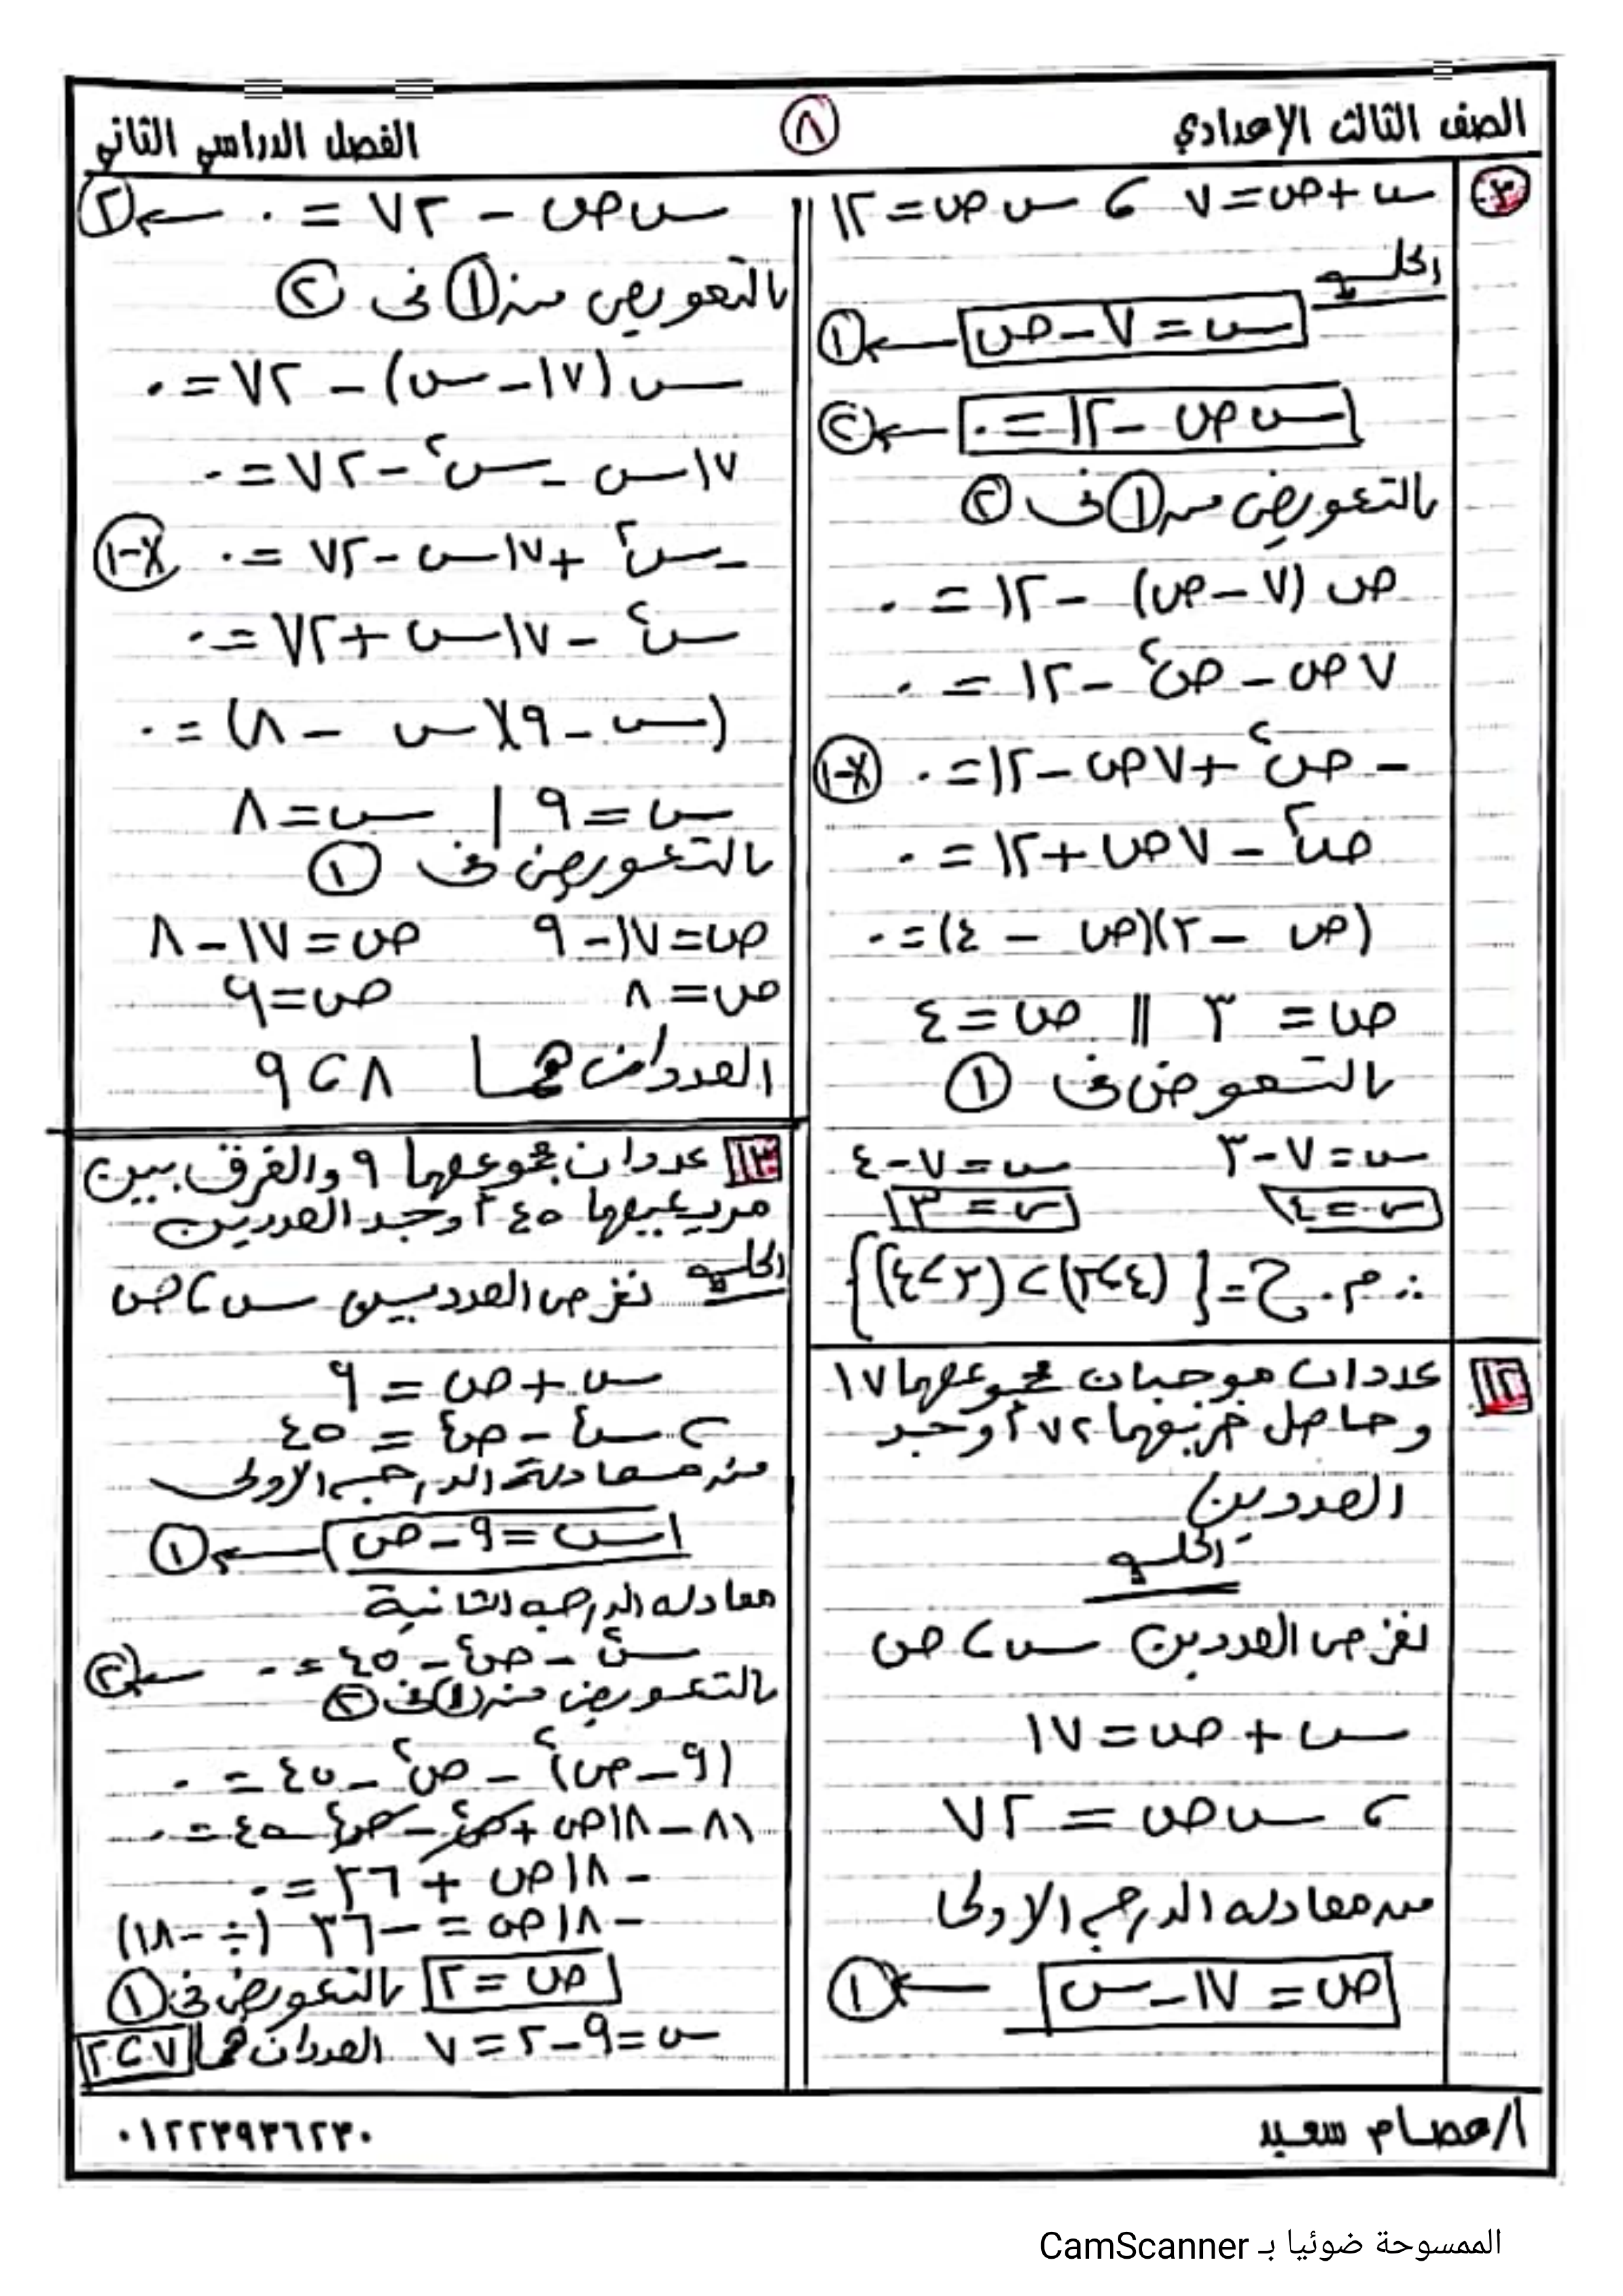 الصف الثالث الإعدادي
٨
الفصل الدراسي الثاني
٣
س + ص = ٧ ، س ص = ١٢
الحل
س = ٧ - ص ← ١
س ص - ١٢ = ٠ ← ٢
بالتعويض من ١ في ٢
ص (٧ - ص) - ١٢ = ٠
٧ص - ص٢ - ١٢ = ٠
- ص٢ + ٧ص - ١٢ = ٠ × -١
ص٢ - ٧ص + ١٢ = ٠
(ص - ٣)(ص - ٤) = ٠
ص = ٣ || ص = ٤
بالتعويض في ١
س = ٧ - ٣ س = ٧ - ٤
س = ٤ س = ٣
∴ م . ح = { (٤،٣) ، (٣،٤) }
١٢
عددان موجبان مجموعهما ١٧
وحاصل ضربهما ٧٢ أوجد
العددين
الحل
نفرض العددين س ، ص
س + ص = ١٧
، س ص = ٧٢
من معادله الدرجه الاولى
ص = ١٧ - س ← ١
س ص - ٧٢ = ٠ ← ٢
بالتعويض من ١ في ٢
س (١٧ - س) - ٧٢ = ٠
١٧س - س٢ - ٧٢ = ٠
- س٢ + ١٧س - ٧٢ = ٠ × -١
س٢ - ١٧س + ٧٢ = ٠
(س - ٩)(س - ٨) = ٠
س = ٩ | س = ٨
بالتعويض في ١
ص = ١٧ - ٩ ص = ١٧ - ٨
ص = ٨ ص = ٩
العددان هما ٨ ، ٩
١٣
عددان مجموعهما ٩ والفرق بين
مربعيهما ٤٥ أوجد العددين
الحل نفرض العددين س ، ص
س + ص = ٩
، س٢ - ص٢ = ٤٥
من معادلة الدرجه الاولى
س = ٩ - ص ← ١
معادله الدرجه الثانية
س٢ - ص٢ - ٤٥ = ٠ ← ٢
بالتعويض من ١ في ٢
(٩ - ص)٢ - ص٢ - ٤٥ = ٠
٨١ - ١٨ص + ص٢ - ص٢ - ٤٥ = ٠
- ١٨ص + ٣٦ = ٠
- ١٨ص = - ٣٦ (÷ - ١٨)
ص = ٢ بالتعويض في ١
س = ٩ - ٢ = ٧ العددان هما ٧ ، ٢
أ/عصام سعيد
٠١٢٢٣٩٣٦٢٣٠
الممسوحة ضوئيا بـ CamScanner